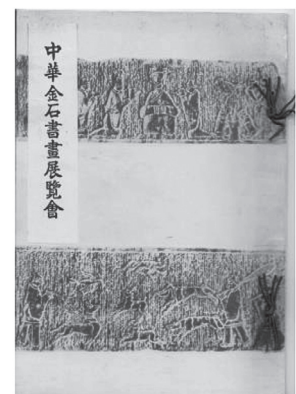 中華金石書畫展覽會